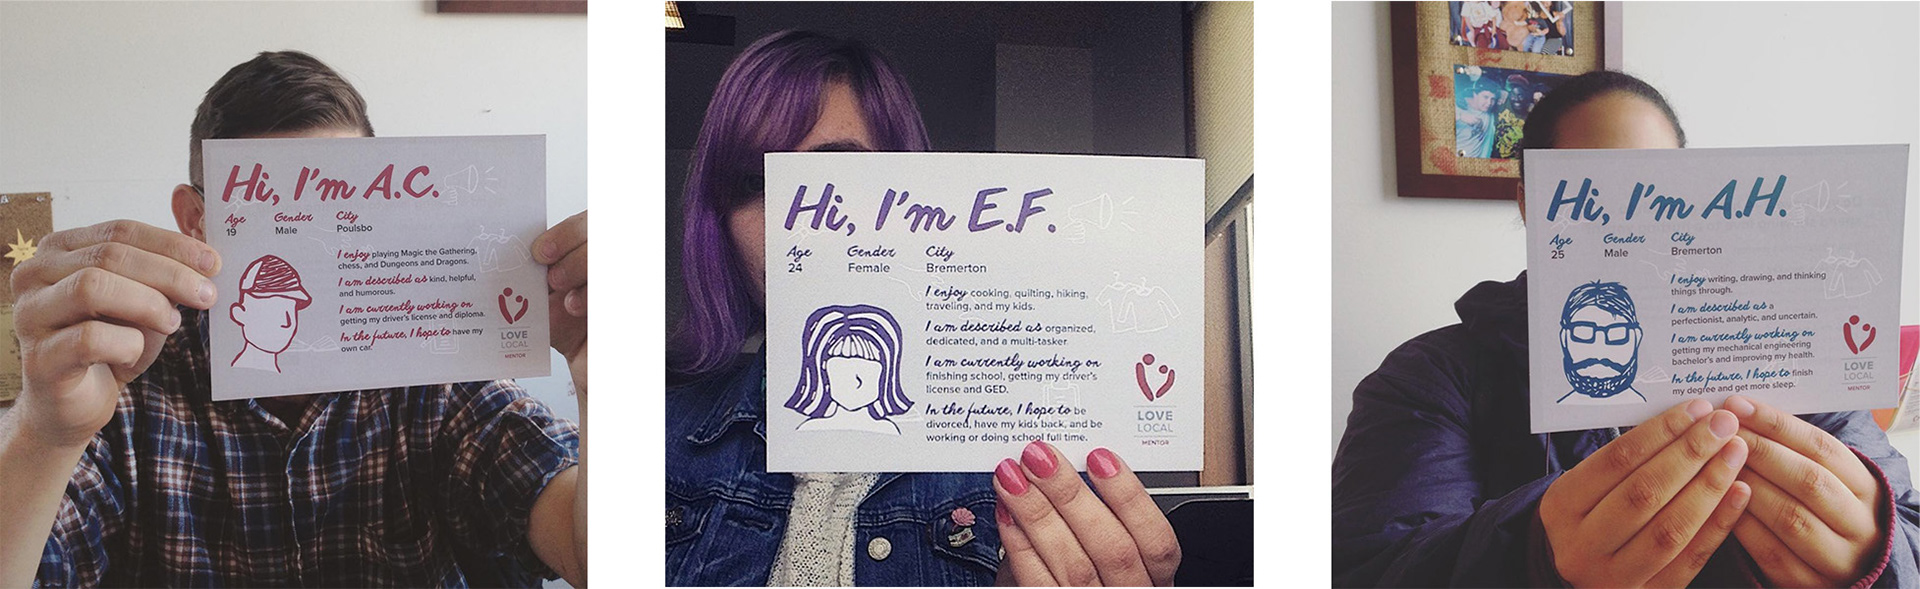 Hi, I'm A.C.
Age Gender City
19 Male Poulsbo
I enjoy playing Magic the Gathering,
chess, and Dungeons and Dragons.
I am described as kind, helpful,
and humorous.
I am currently working on
getting my driver's license and diploma.
In the future, I hope to have my
own car.
LOVE
LOCAL
MENTOR
Hi, I'm E.F.
Age Gender City
24 Female Bremerton
I enjoy cooking, quilting, hiking,
traveling, and my kids.
I am described as organized,
dedicated, and a multi-tasker.
I am currently working on
finishing school, getting my driver's
license and GED.
In the future, I hope to be
divorced, have my kids back, and be
working or doing school full time.
LOVE
LOCAL
MENTOR
Hi, I'm A.H.
Age Gender City
25 Male Bremerton
I enjoy writing, drawing, and thinking
things through.
I am described as a
perfectionist, analytic, and uncertain.
I am currently working on
getting my mechanical engineering
bachelor's and improving my health.
In the future, I hope to finish
my degree and get more sleep.
LOVE
LOCAL
MENTOR